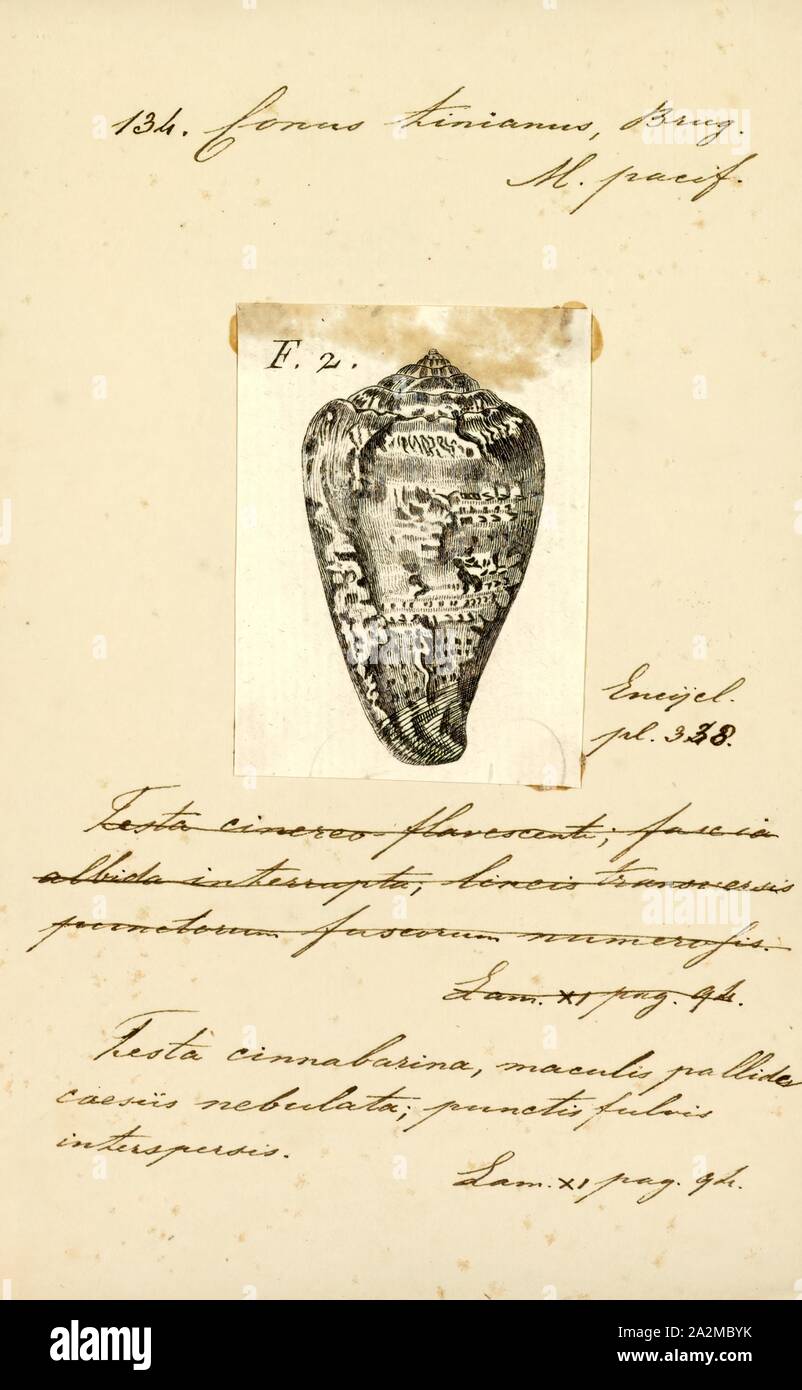 134. Conus tinianus, Brug.
M. pacif.
F. 2.
Encijcl.
pl. 338.
Testa cinereo-flavescenti; fascia
albida interrupta; lineis transversis
punctorum fuscorum numerosis.
Lam. XI pag. 94.
Testa cinnabarina, maculis pallide
caesiis nebulata; punctis fulvis
interspersis.
Lam. XI pag. 94.
alamy
Image ID: A2MBYK
www.alamy.com